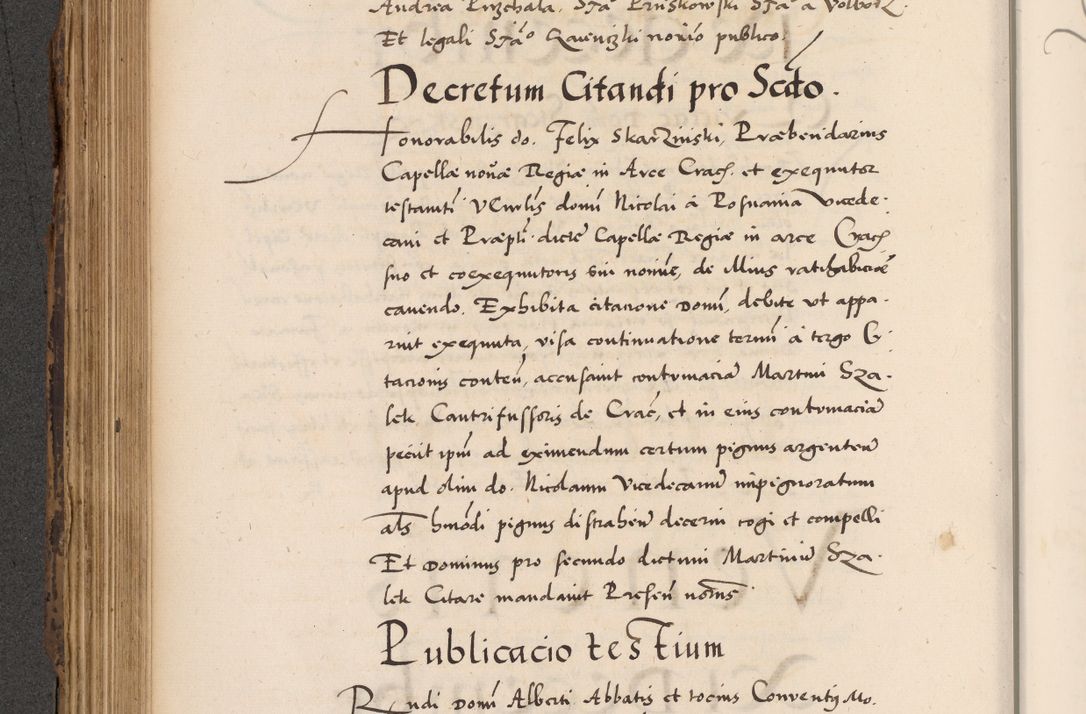 Andrea Przchala, Sta Pruskowski Sta a Volborz.
Et legali Stão Ravenczki notrio publico.
Decretum Citandi pro Scdto.
Honorabilis do. Felix Skarzinski, Præbendarius
Capellæ nouæ Regiæ in Arce Crach. et exequutor
testamti Venrlis domi Nicolai à Posnania Vicede-
cani et Præpti dictæ Capellæ Regiæ in arce Crach
suo et coexequutoris sui nomine, de illius ratihabicioe
cauendo. Exhibita citacione Domi, debite vt appa-
ruit exequuta, visa continuatione termi à tergo Ci-
tacionis conten, accusauit contumaciã Martini Sza-
lek Cantrifussoris de Crac, et in eius contumaciã
peciit ipm ad eximendum certum pignus argenteũ
apud olim do. Nicolaum Vicedecanũ inpignoratum
als hmõdi pignus distrahen decerni cogi et compelli
Et Dominus pro secundo dictum Martinũ Sza-
lek Citare mandauit Presen nostris
Publicacio testium
Rndi Domi Alberti Abbatis et tocius Conventus Mo.